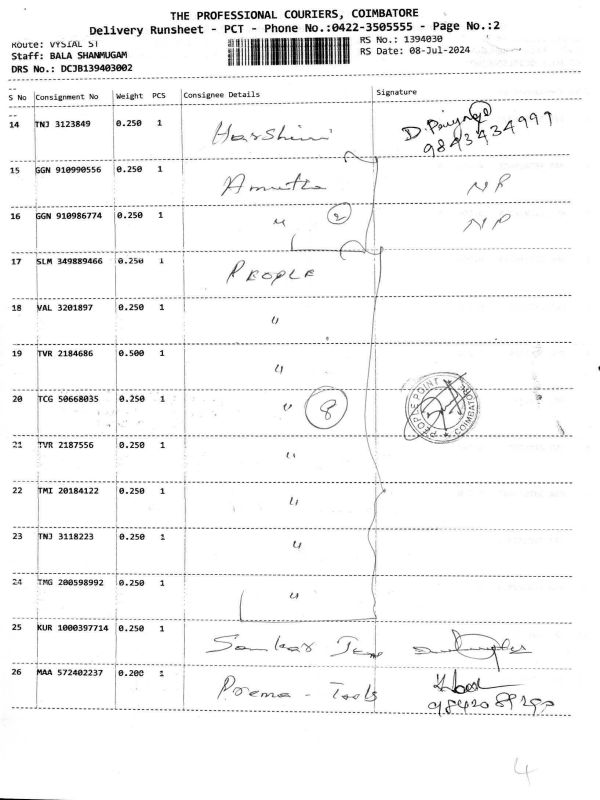 THE PROFESSIONAL COURIERS, COIMBATORE
Delivery Runsheet - PCT - Phone No.:0422-3505555 - Page No.:2
Route: VYSIAL ST
RS No.: 1394030
Staff: BALA SHANMUGAM
RS Date: 08-Jul-2024
DRS No.: DCJB139403002
S No Consignment No Weight PCS Consignee Details Signature
14 TNJ 3123849 0.250 1 Harshini
9843434999
15 GGN 910990556 0.250 1 Amutha NP
16 GGN 910986774 0.250 1 " 2 NP
17 SLM 349889466 0.250 1 PEOPLE
18 VAL 3201897 0.250 1 "
19 TVR 2184686 0.500 1 "
20 TCG 50668035 0.250 1 " 8 PEOPLE POINT COIMBATORE
21 TVR 2187556 0.250 1 "
22 TMI 20184122 0.250 1 "
23 TNJ 3118223 0.250 1 "
24 TMG 200598992 0.250 1 "
25 KUR 1000397714 0.250 1 Sankar
26 MAA 572402237 0.200 1 Prema - Tools
4